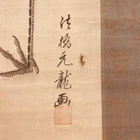 法橋元龍画